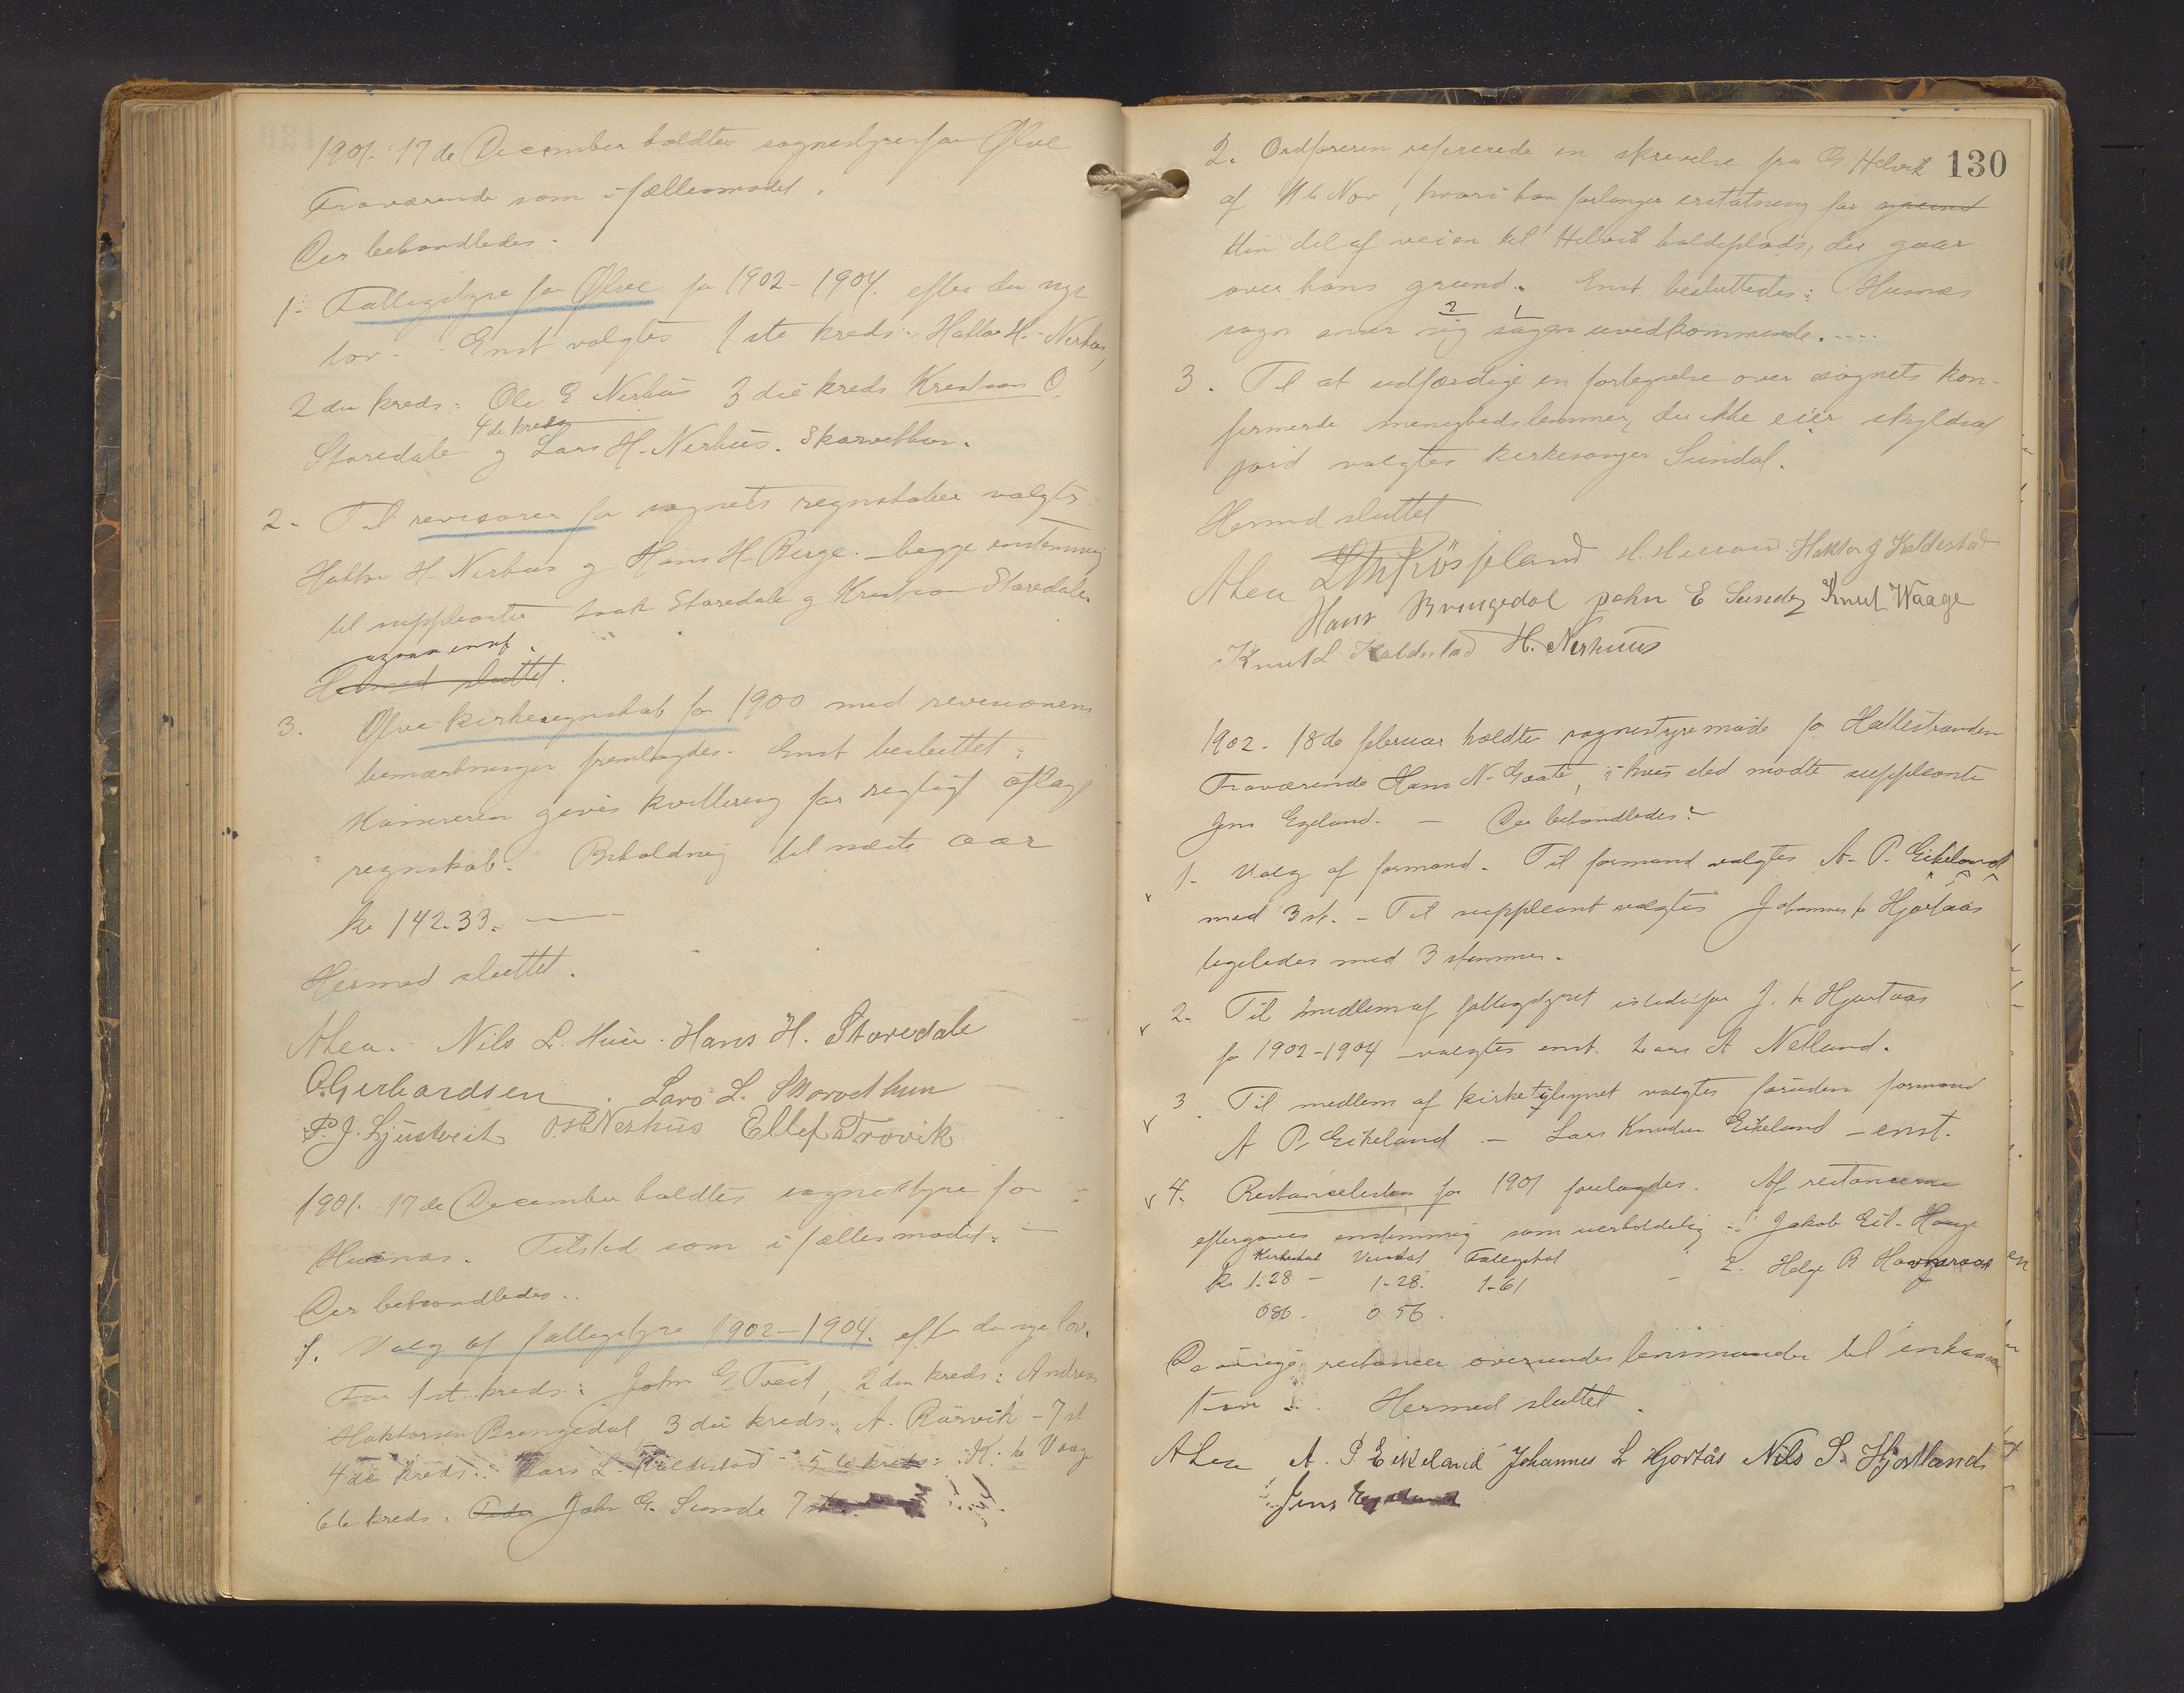 1901. 17de December holdtes sognestyre for Ølve
Fraværende som i fællesmødet.
Der behandledes.
1. Fattigstyre for Ølve for 1902-1904. efter den nye
lov. - Enst valgtes 1ste kreds: Haktor H. Nerhus,
2den kreds: Ole E Nerhus 3die kreds Krestian O.
4de kreds
Storedale og Lars H. Nerhus. Skorvethun.
2. Til revisorer for sognets regnskaber valgtes
Haktor H. Nerhus og Hans H. Berge. - begge enstemmig
til suppleanter Isak Storedale og Krestian Storedale.
ogsaa enst.
Hermed sluttet.
3. Ølve kirkeregnskab for 1900 med revisionens
bemærkninger fremlagdes. Enst besluttet:
Kæmneren gives kvittering for rigtigt aflagt
regnskab. Beholdning til næste aar
kr 142.33.
Hermed sluttet.
A Lea. Nils L. Hus. Hans H. Storedale
O. Gerhardsen. Lars L. Skorvethun
P. J. Ljustveit O. H. Nerhus Ellef Trovik
1901. 17de December holdtes sognestyre for
Husnæs. Tilsted som i fællesmødet.
Der behandledes..
1. Valg af fattigstyre 1902-1904. efter den nye lov.
For 1st kreds: John G Tveit, 2den kreds: Andreas
Haktorsen Brengedal 3die kreds: A. Rørvik - 7 st
4de kreds: Lars L. Kaldestad - 5te kreds: K. K. Vaag
6te kreds. Peder John E. Sunde 7 st.
130
2. Ordføreren refererede en skrivelse fra G Helvik
af 11te Nov, hvori han forlanger erstatning for grund
den del af veien til Helvik holdeplads, der gaar
over hans grund. Enst besluttedes: Husnæs
2 1
sogn anser sig sagen uvedkommende.
3. Til at udfærdige en fortegnelse over sognets kon-
firmerede menighedslemmer, der ikke eier skyldsat
jord valgtes kirkesanger Sundal.
Hermed sluttet
A Lea H. Husnæs. Haktor J Kaldestad
Hans Brengedal John E Sunde Knut Waage
Knut L Kaldestad H. Nerhuus
1902. 18de februar holdtes sognestyremøde for Hatlestranden
Fraværende Hans N. Gaate, i hvis sted mødte suppleanten
Jens Egeland. - Der behandledes:
1. Valg af formand. Til formand valgtes A. P. Eikeland
med 3 st. - Til suppleant valgtes Johannes L Hjortaas
ligeledes med 3 stemmer.
2. Til medlem af fattigstyret istedetfor J. L Hjortaas
for 1902-1904 valgtes enst. Lars A Netland.
3. Til medlem af kirketilsynet valgtes foruden formand
A P. Eikeland - Lars Knudsen Eikeland - enst.
4. Restancelisten for 1901 forelagdes. Af restancerne
eftergaves enstemmig som uerholdelig: 1. Jakob Eil. Hauge
Kirkeskat Veiskat Fattigskat
kr 1.28 - 1-28. 1-61 - 2. Helge B
086 - 0 56.
De øvrige restancer oversendes lensmanden til inkassa
tion. Hermed sluttet.
A Lea A. P Eikeland Johannes L Hjortås Nils S. Hjortland
Jens Egeland